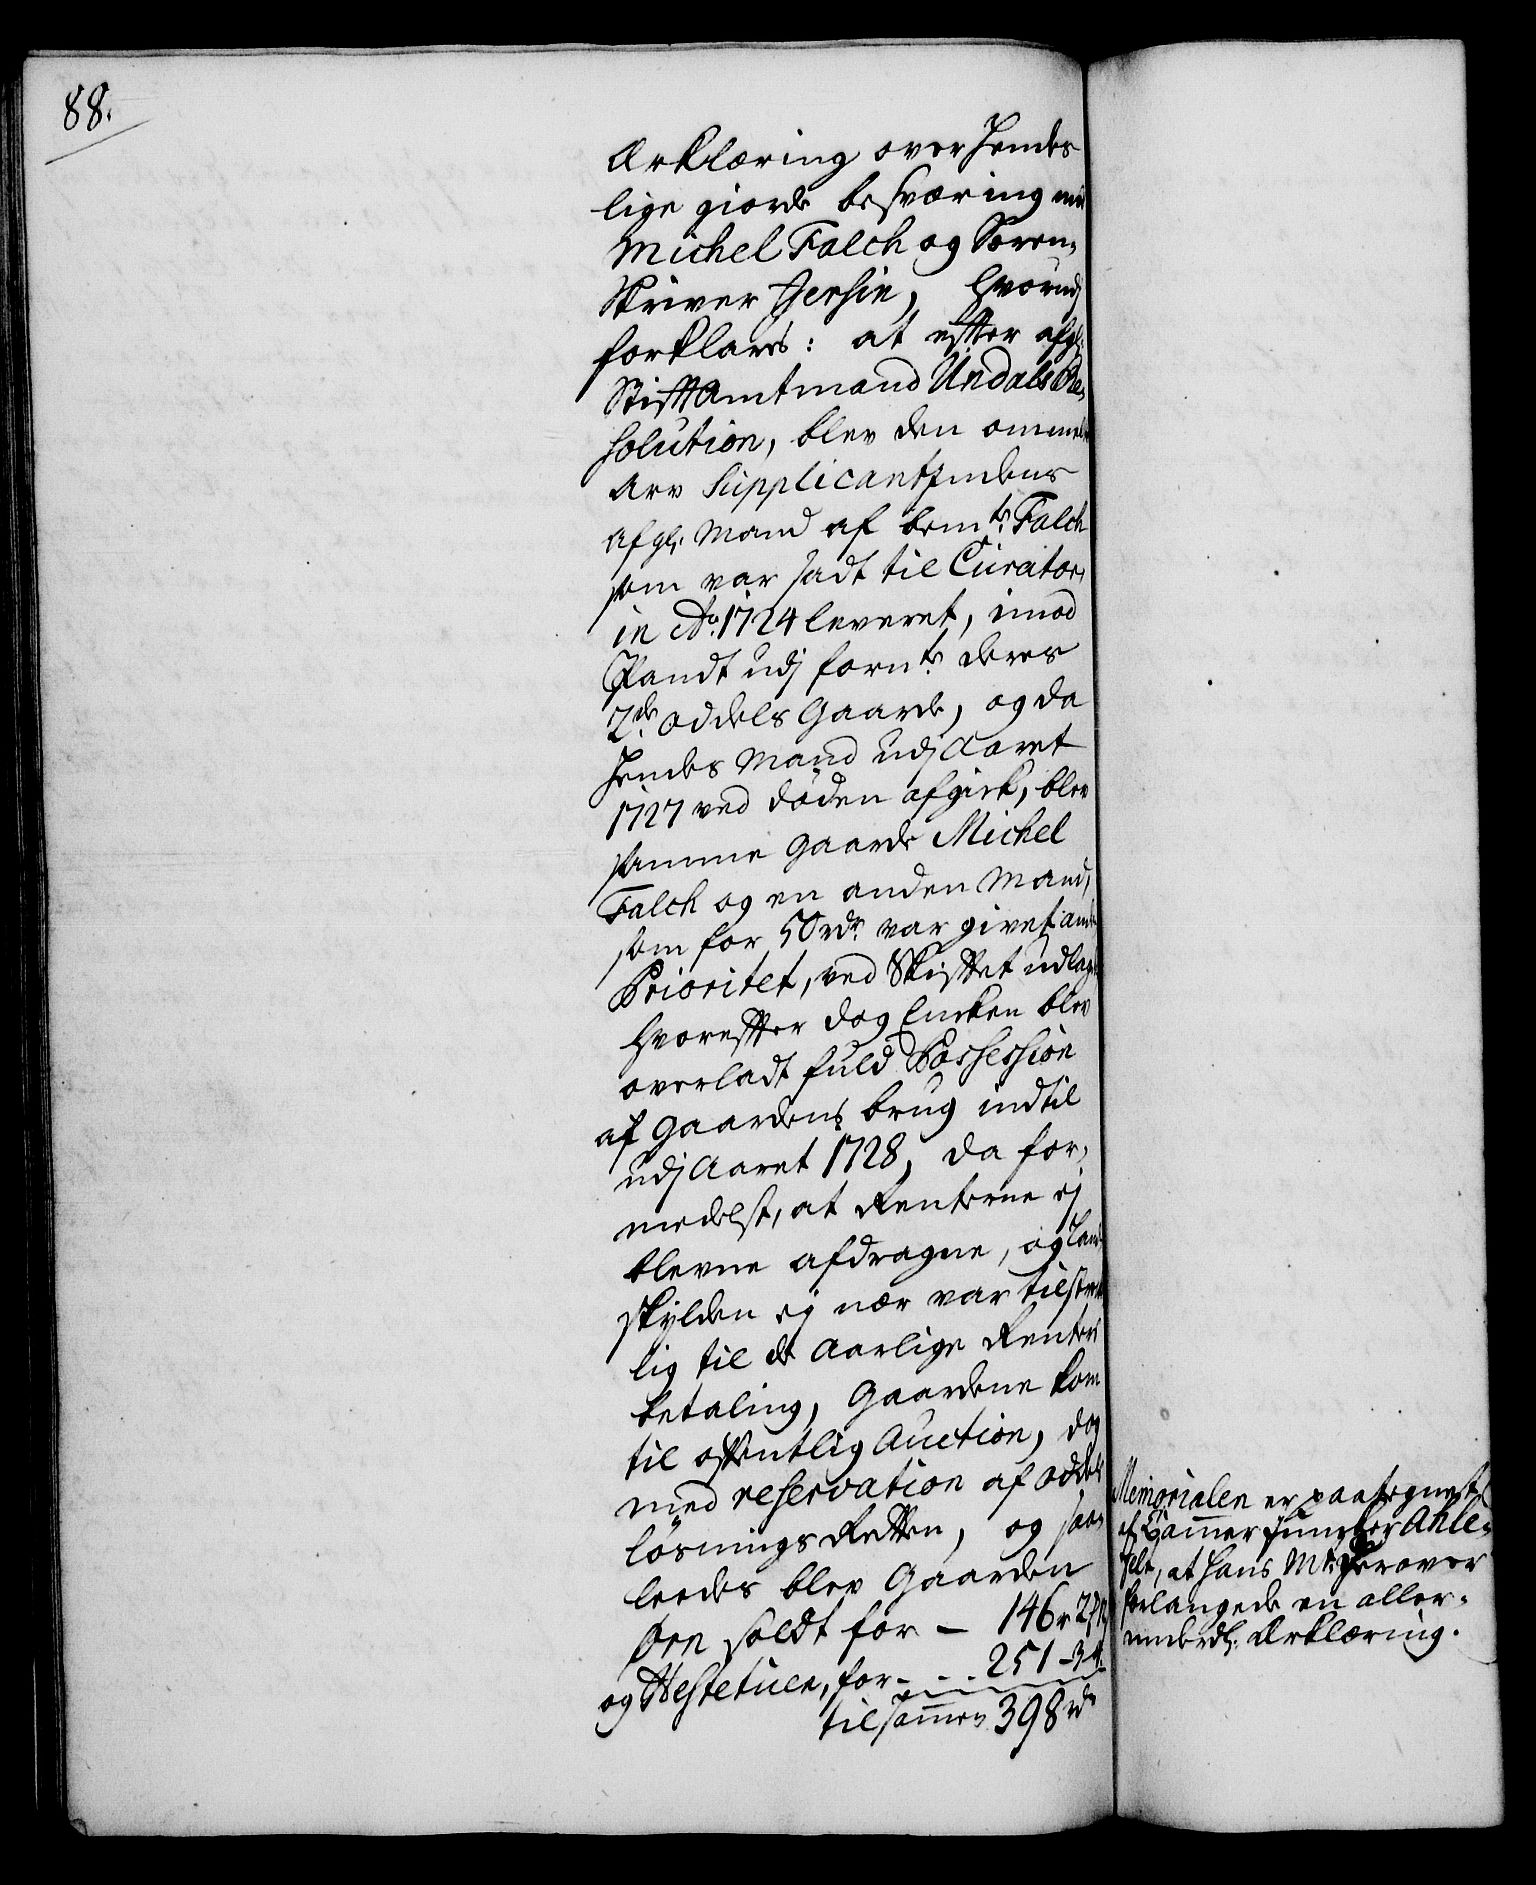 88.
Erklæring over hendes
lige giorde besværing mod
Michel Falch og Soren-
skriver Jersin, hvorudj
forklares: at efter afgl:
Stiftamtmand Undals Re-
solution, blev den ommelte
Arv Supplicantindens
afgl: Mand af bemte Falch
som var sadt til Curator,
in Ao. 1724 leveret, imod
Pandt udj fornte deres
2de Oddels Gaarde, og da
hendes Mand udj Aaret
1727 ved døden afgik, blev
samme Gaarde Michel
Falch og en anden Mand,
som for 50 rdr. var givet anden
Prioritet, ved Skiftet udlagt
hvorefter dog Encken blev
overladt fuld Possession
af Gaardens brug indtil
udj Aaret 1728, da for-
medelst, at Renterne ej
blevne afdragne, og Land-
skylden ej nær var tilstræk-
lig til de Aarlige Renters
betaling, Gaardene kom
til offentlig Auction, dog
med reservation af Oddels
løsnings Retten, og saa-
leedes blev Gaarden
Øen soldt for — 146 r
og Hestetuen, for - . . . 251 - 3
tilsammen 398 rdr
Memorialen er paategnet
af Cammer Junker Ahle-
felt, at Hans Mt. herover
forlangede en aller-
underdl: Erklæring.